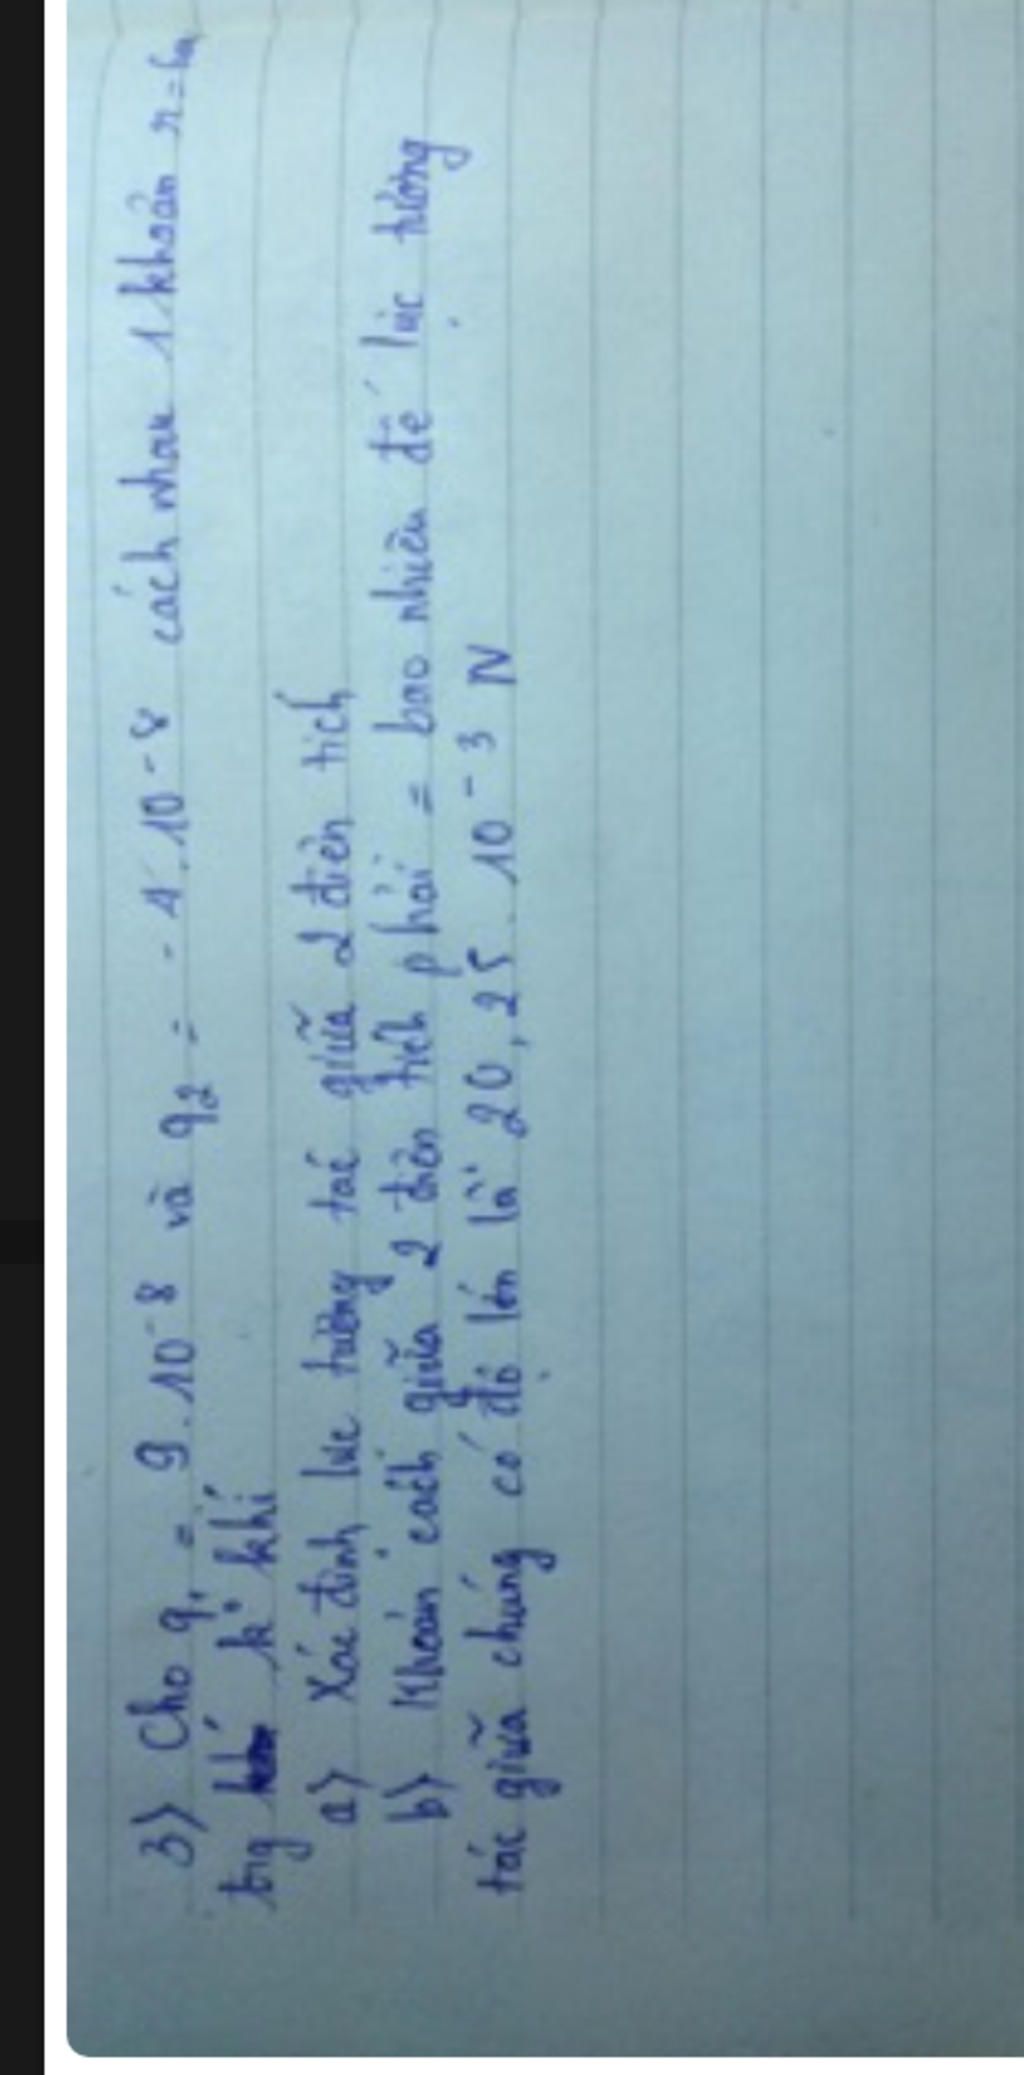 3) Cho q₁ = 9.10⁻⁸ và q₂ = - 4.10⁻⁸ cách nhau 1 khoản r =
trg k° khí
a) Xác định lực tương tác giữa 2 điện tích
b) Khoản cách giữa 2 điện tích phải = bao nhiêu để lực tương
tác giữa chúng có độ lớn là 20,25.10⁻³ N